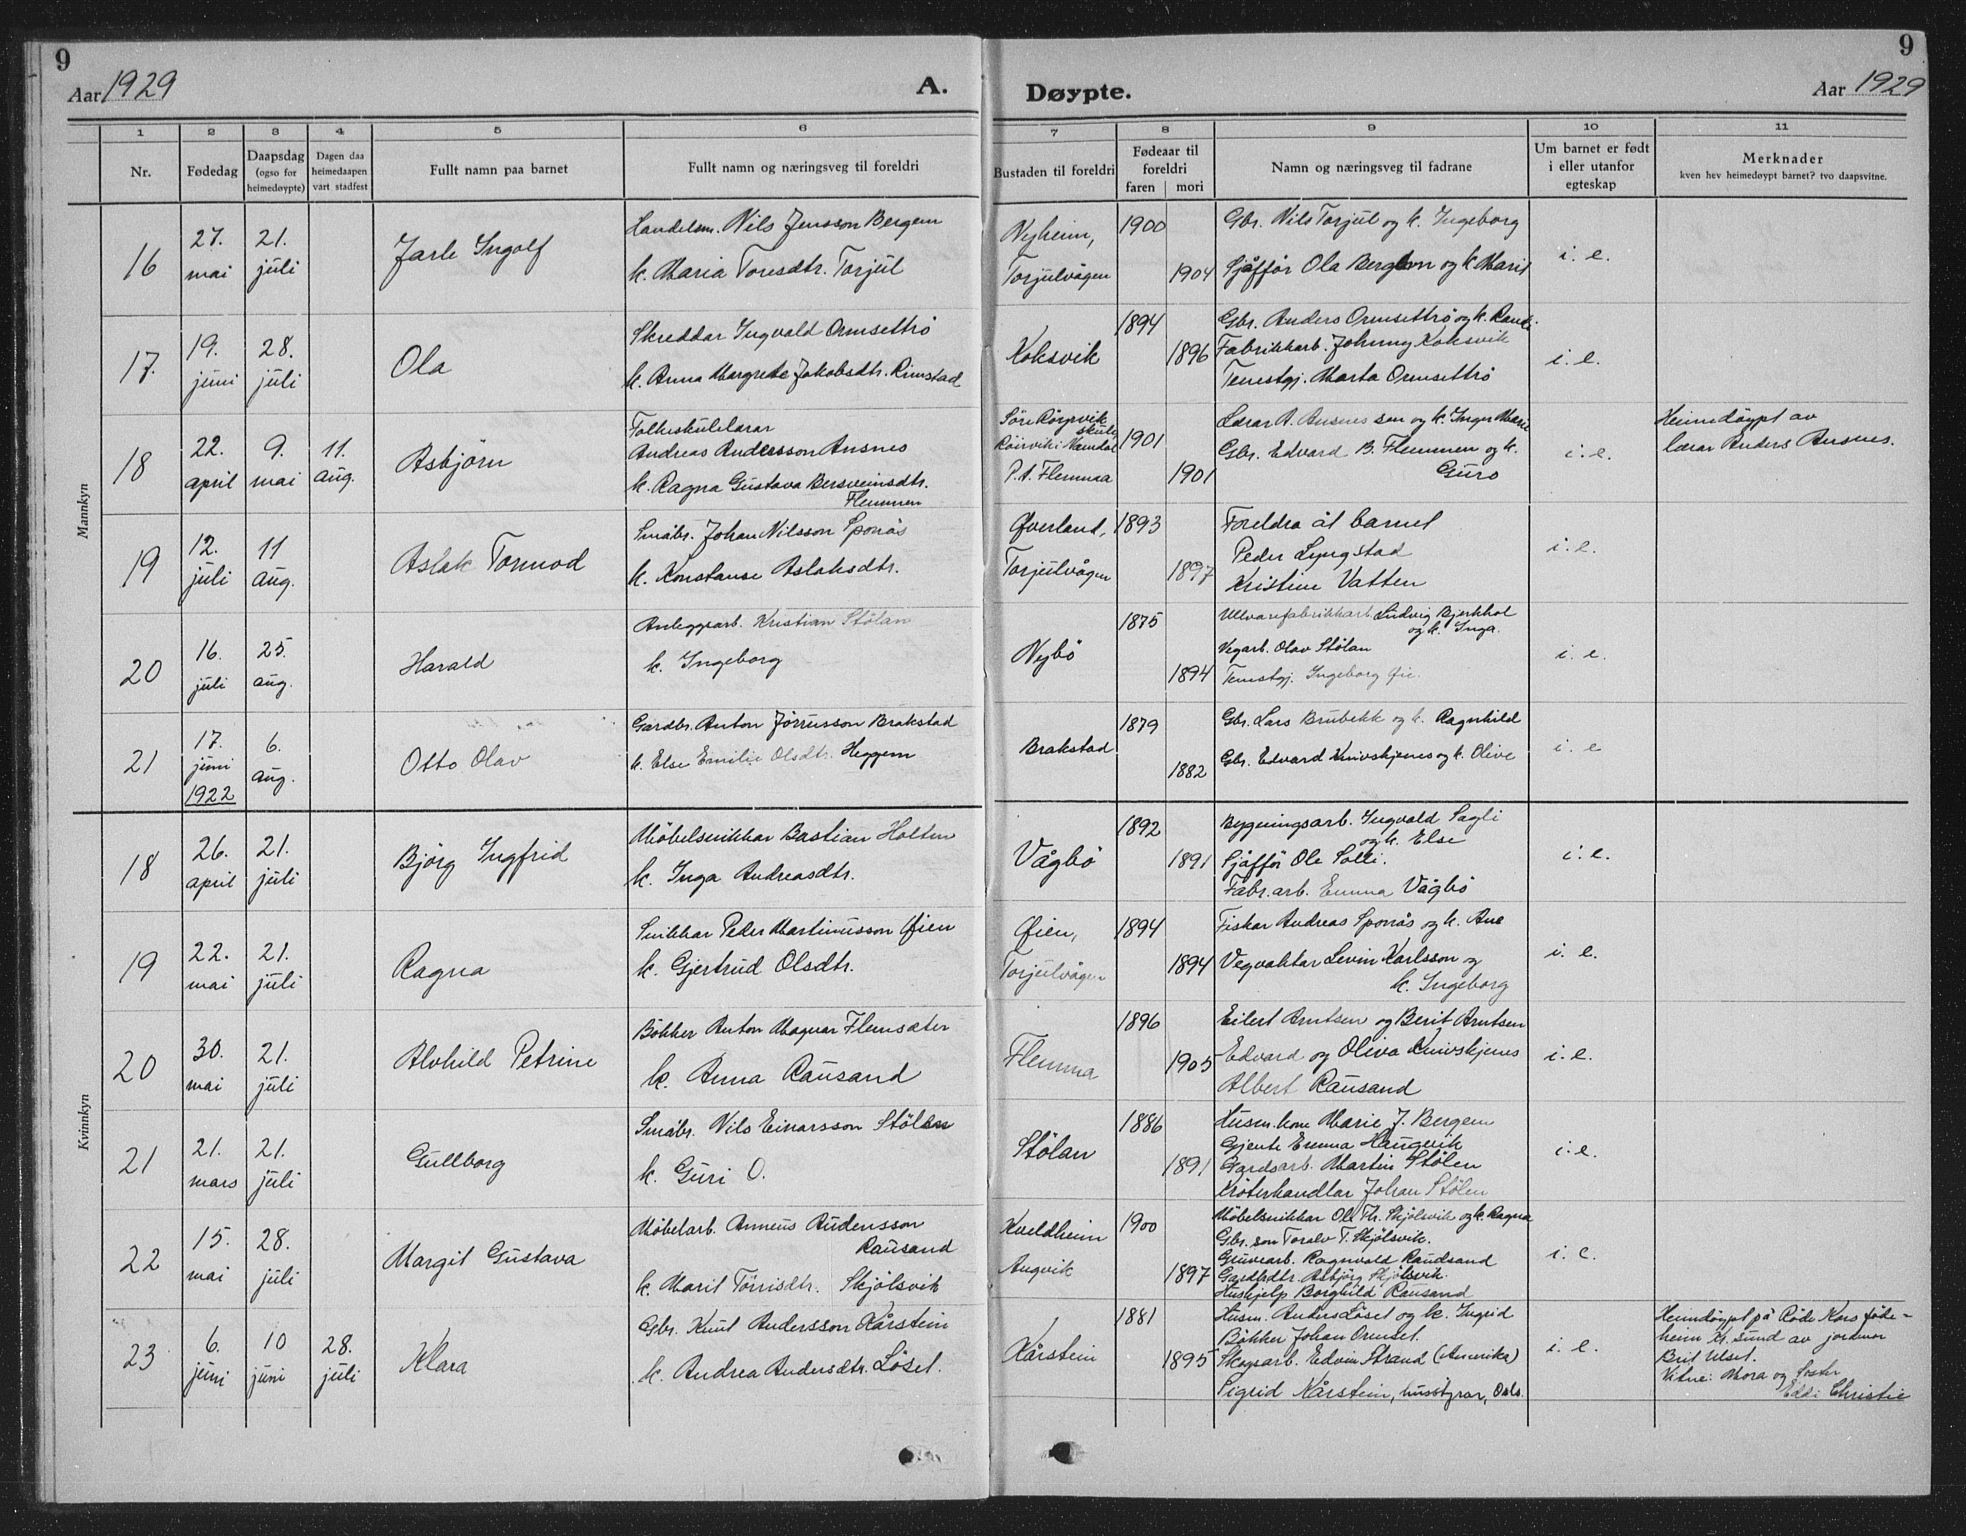 9
Aar 1929
A.
Døypte.
Aar 1929
9
1 2 3 4 5 6 7 8 9 10 11
Nr.
Fødedag
Daapsdag
(ogso for
heimedøypte)
Dagen daa
heimedaapen
vart stadfest
Fullt namn paa barnet
Fullt namn og næringsveg til foreldri
Bustaden til foreldri
Fødeaar til
foreldri
faren mori
Namn og næringsveg til fadrane
Um barnet er født
i eller utanfor
egteskap
Merknader
kven hev heimedøypt barnet? tvo daapsvitne.
Mannkyn
16
27.
mai
21.
juli
Jarle Ingolf
Handelsm. Nils Jensson Bergem
k. Maria Toresdtr. Torjul
Nyheim,
Torjulvågen
1900
1904
Gbr. Nils Torjul og k. Ingeborg
Sjåffør Ola Bergem og k. Marit
i. e.
17.
19.
juni
28.
juli
Ola
Skreddar Ingvald Ormsettrø
k. Anna Margrete Jakobsdtr. Rimstad
Koksvik
1894
1896
Gbr. Anders Ormsettrø og k. Randi.
Fabrikkarb. Johnny Koksvik
Tenestgj. Marta Ormsettrø
i. e.
18
22.
april
9.
mai
11.
aug.
Asbjörn
Folkeskulelærar
Andreas Andersson Ansnes
k. Ragna Gustava Bersveinsdtr.
Flemmen
Søre Rörvik
skule
Röirvik i Namdal
P.t. Flemma
1901
1901
Lærar A. Ansnes sen og k. Inger Marie
Gbr. Edvard B. Flemmen og k.
Guro
i. e.
Heimdöypt av
lærar Anders Ansnes.
19
12.
juli
11
aug.
Aslak Tormod
Småbr. Johan Nilsson Sponås
k. Konstanse Aslaksdtr.
Øverland,
Torjulvågen
1893
1897
Foreldra åt barnet
Peder Lyngstad
Kristine Vatten
i. e.
20
16.
juli
25.
aug.
Harald
Anleggsarb. Kristian Stölan
k. Ingeborg
Nybö
1875
1894
Ullvarefabrikkarb. Ludvig Bjerkhol
og k. Inga.
Vegarb. Olav Stölan
Tenestgj. Ingeborg Øie.
i. e.
21
17.
juni
1922
6.
aug.
Otto Olav
Gardbr. Anton Jörrusson Brakstad
k. Else Emilie Olsdtr. Heggem
Brakstad
1879
1882
Gbr. Lars Brubekk og k. Ragnhild
Gbr. Edvard Knivskjenes og k. Olive
i. e
Kvinnkyn
18
26.
april
21.
juli
Björg Ingfrid
Möbelsnikkar Bastian Holten
k. Inga Andreasdtr.
Vågbö
1892
1891
Bygningsarb. Ingvald Sagli
og k. Else
Sjåffør Ole Solli.
Fabr.arb. Emma Vågbö
i. e.
19
22.
mai
21.
juli
Ragna
Snikkar Peder Martinusson Øien
k. Gjertrud Olsdtr.
Øien,
Torjulvågen
1894
1894
Fiskar Andreas Sponås og k. Ane
Vegvaktar Levin Karlsson og
k. Ingeborg
i. e.
20
30.
mai
21.
juli
Alvhild Petrine
Bökker Anton Magnar Flemsæter
k. Anna Rausand
Flemma
1896
1905
Eilert Arntsen og Berit Arntsen
Edvard og Oliva Knivskjenes
Albert Rausand
i. e.
21
21.
mars
21.
juli
Gullborg
Småbr. Nils Einarsson Stölan
k. Guri O.
Stölan
1886
1891
Husm. kone Marie J. Bergem
Gjente Emma Haugevik
Gardsarb. Martin Stölen
Krøterhandlar Johan Stölen
i. e.
22
15.
mai
28.
juli
Margit Gustava
Möbelarb. Anneus Audensson
Rausand
k. Marit Törrisdtr. Skjölsvik
Kveldheim
Angvik
1900
1897
Möbelsnikkar Ole Th. Skjölsvik og k. Ragna
Gbr. son Toralv T. Skjölsvik.
Gruvearb. Ragnvald Raudsand
Gardbdtr. Asbjörg Skjölsvik.
Hushjelp Borghild Rausand
i. e.
23
6.
juni
10
juni
28.
juli
Klara
Gbr. Knut Andersson Kårstein
k. Andrea Andersdtr. Löset.
Kårstein
1881
1895
Husm. Anders Löset og k. Ingrid
Bökker Johan Ormset.
Skogsarb. Edvin Strand (Amerika)
Sigrid Kårstein, husstyrar, Oslo.
i. e.
Heimdöypt på Röde Kors föde-
heim Kr.sund av jordmor
Brit Ulset.
Vitne: Mora og Syster
Christie